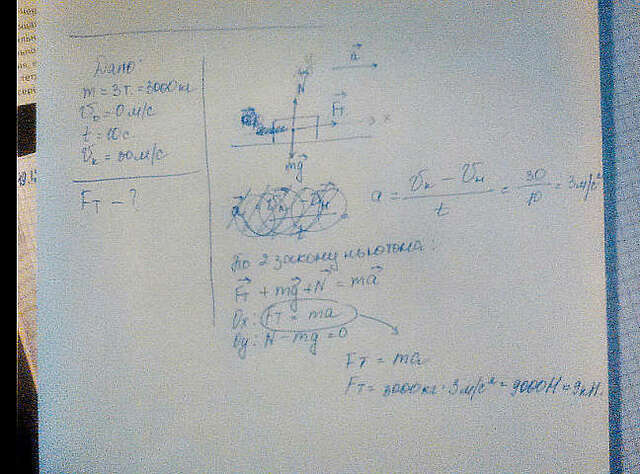 Дано:
m = 3т. = 3000кг
v₀ = 0 м/с
t = 10с
vк = 30 м/с
Fт - ?
a⃗
N⃗
F⃗т
x
mg⃗
a = (vк - vн)/t = 30/10 = 3 м/с²
По 2 закону ньютона:
F⃗т + mg⃗ + N⃗ = ma⃗
Ox: Fт = ma
Oy: N - mg = 0
Fт = ma
Fт = 3000кг · 3 м/с² = 9000Н = 9кН.